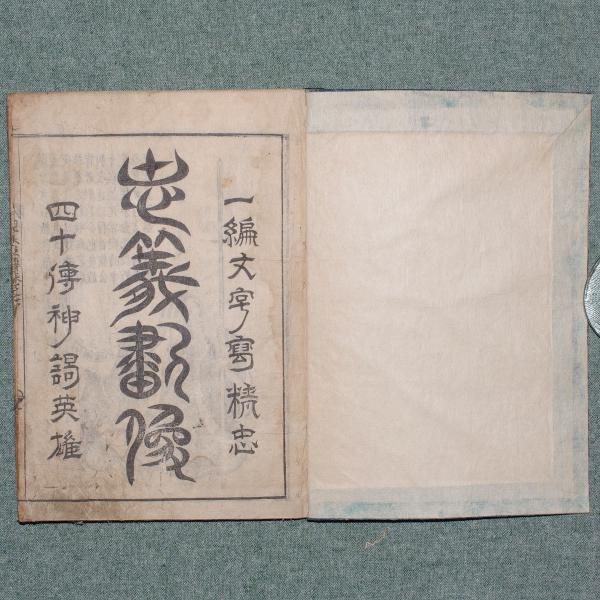 一編文字寫精忠
忠義劃像
四十傳神謁英雄